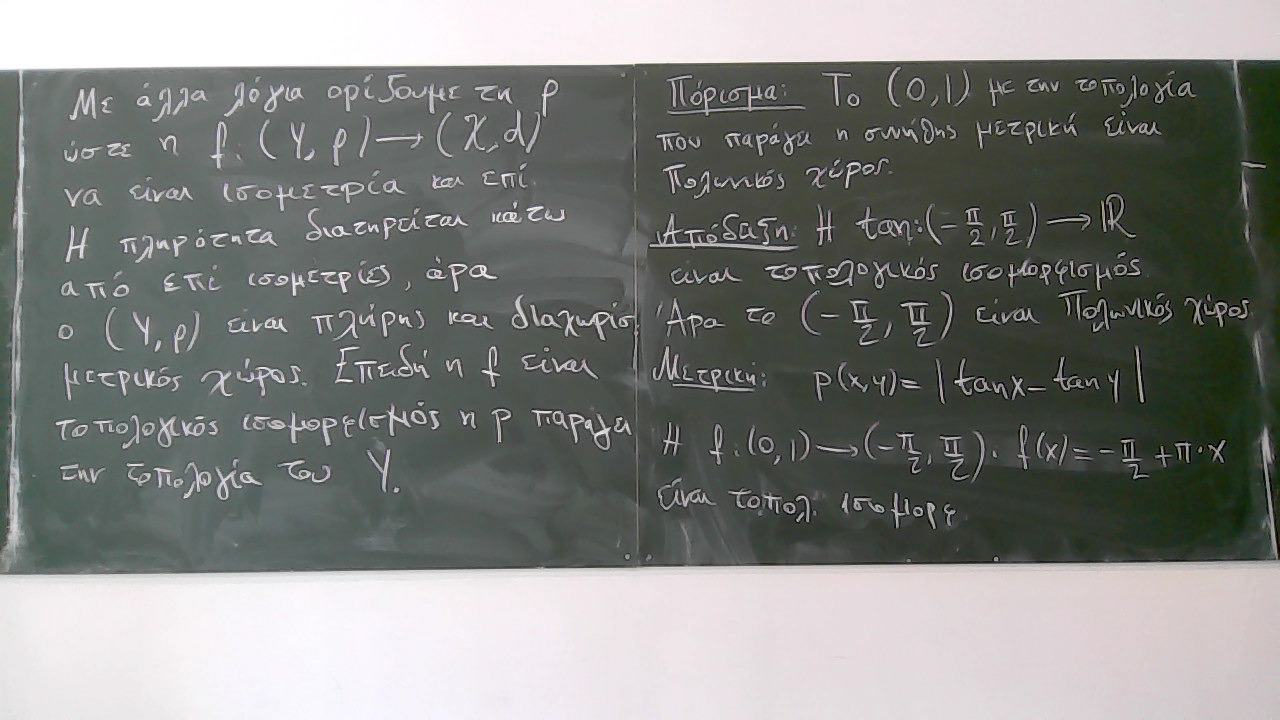 Με άλλα λόγια ορίζουμε τη ρ
ώστε η f: (Y, ρ) ⟶ (X, d)
να είναι ισομετρία και επί.
Η πληρότητα διατηρείται κάτω
από επί ισομετρίες, άρα
ο (Y, ρ) είναι πλήρης και διαχωρίσ.
μετρικός χώρος. Επειδή η f είναι
τοπολογικός ισομορφισμός η ρ παράγει
την τοπολογία του Y.
Πόρισμα: Το (0,1) με την τοπολογία
που παράγει η συνήθης μετρική είναι
Πολωνικός χώρος.
Απόδειξη: Η tan: (-π/2, π/2) ⟶ ℝ
είναι τοπολογικός ισομορφισμός.
Άρα το (-π/2, π/2) είναι Πολωνικός χώρος
Μετρική: ρ(x,y) = |tanx - tany|
Η f: (0,1) ⟶ (-π/2, π/2): f(x) = -π/2 + π·x
είναι τοπολ. ισομορφ